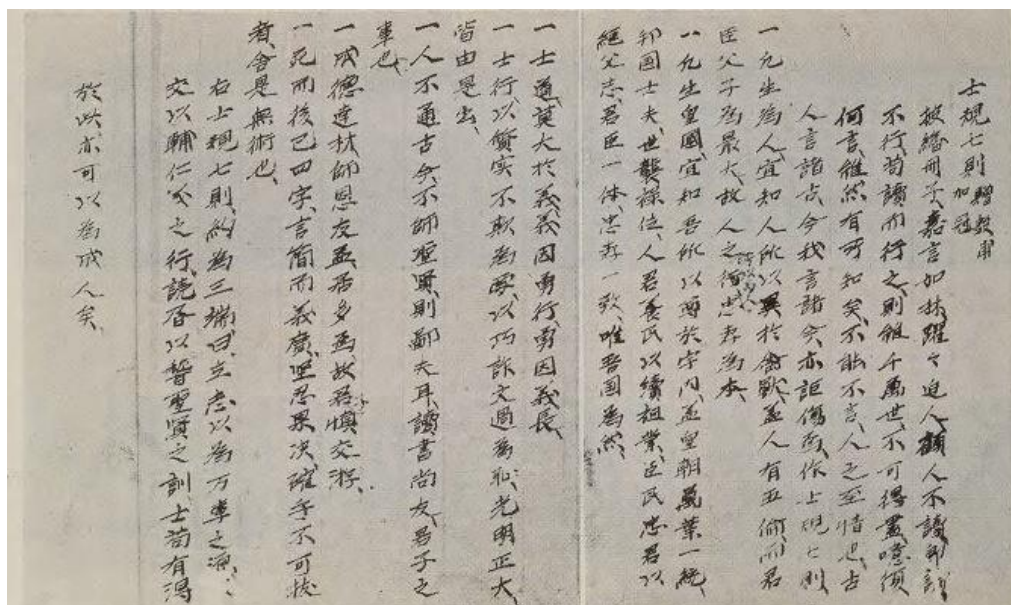 士規七則 贈毅甫加冠
披繙冊子嘉言如林躍々迫人顧人不讀即讀
不行苟讀而行之則雖千萬世不可得盡噫復
何言雖然有所知矣不能不言人之至情也古
人言諸古今我言諸今亦詎傷焉作士規七則
一凡生為人宜知人所以異於禽獸蓋人有五倫而君
臣父子為最大故人之所以為人忠孝為本
一凡生皇國宜知吾所以尊於宇内蓋皇朝萬葉一統
邦国士夫世襲禄位人君養民以續祖業臣民忠君以
継父志君臣一体忠孝一致唯吾国為然
一士道莫大於義義因勇行勇因義長
一士行以質実不欺為要以巧詐文過為恥光明正大
皆由是出
一人不通古今不師聖賢則鄙夫耳讀書尚友君子之
事也
一成徳達材師恩友益居多焉故君子慎交游
一死而後已四字言簡而義廣堅忍果决確乎不可拔
者舍是無術也
右士規七則約為三端曰立志以為万事之源
交以輔仁義之行読書以誓聖賢之訓士苟有得
於此亦可以為成人矣